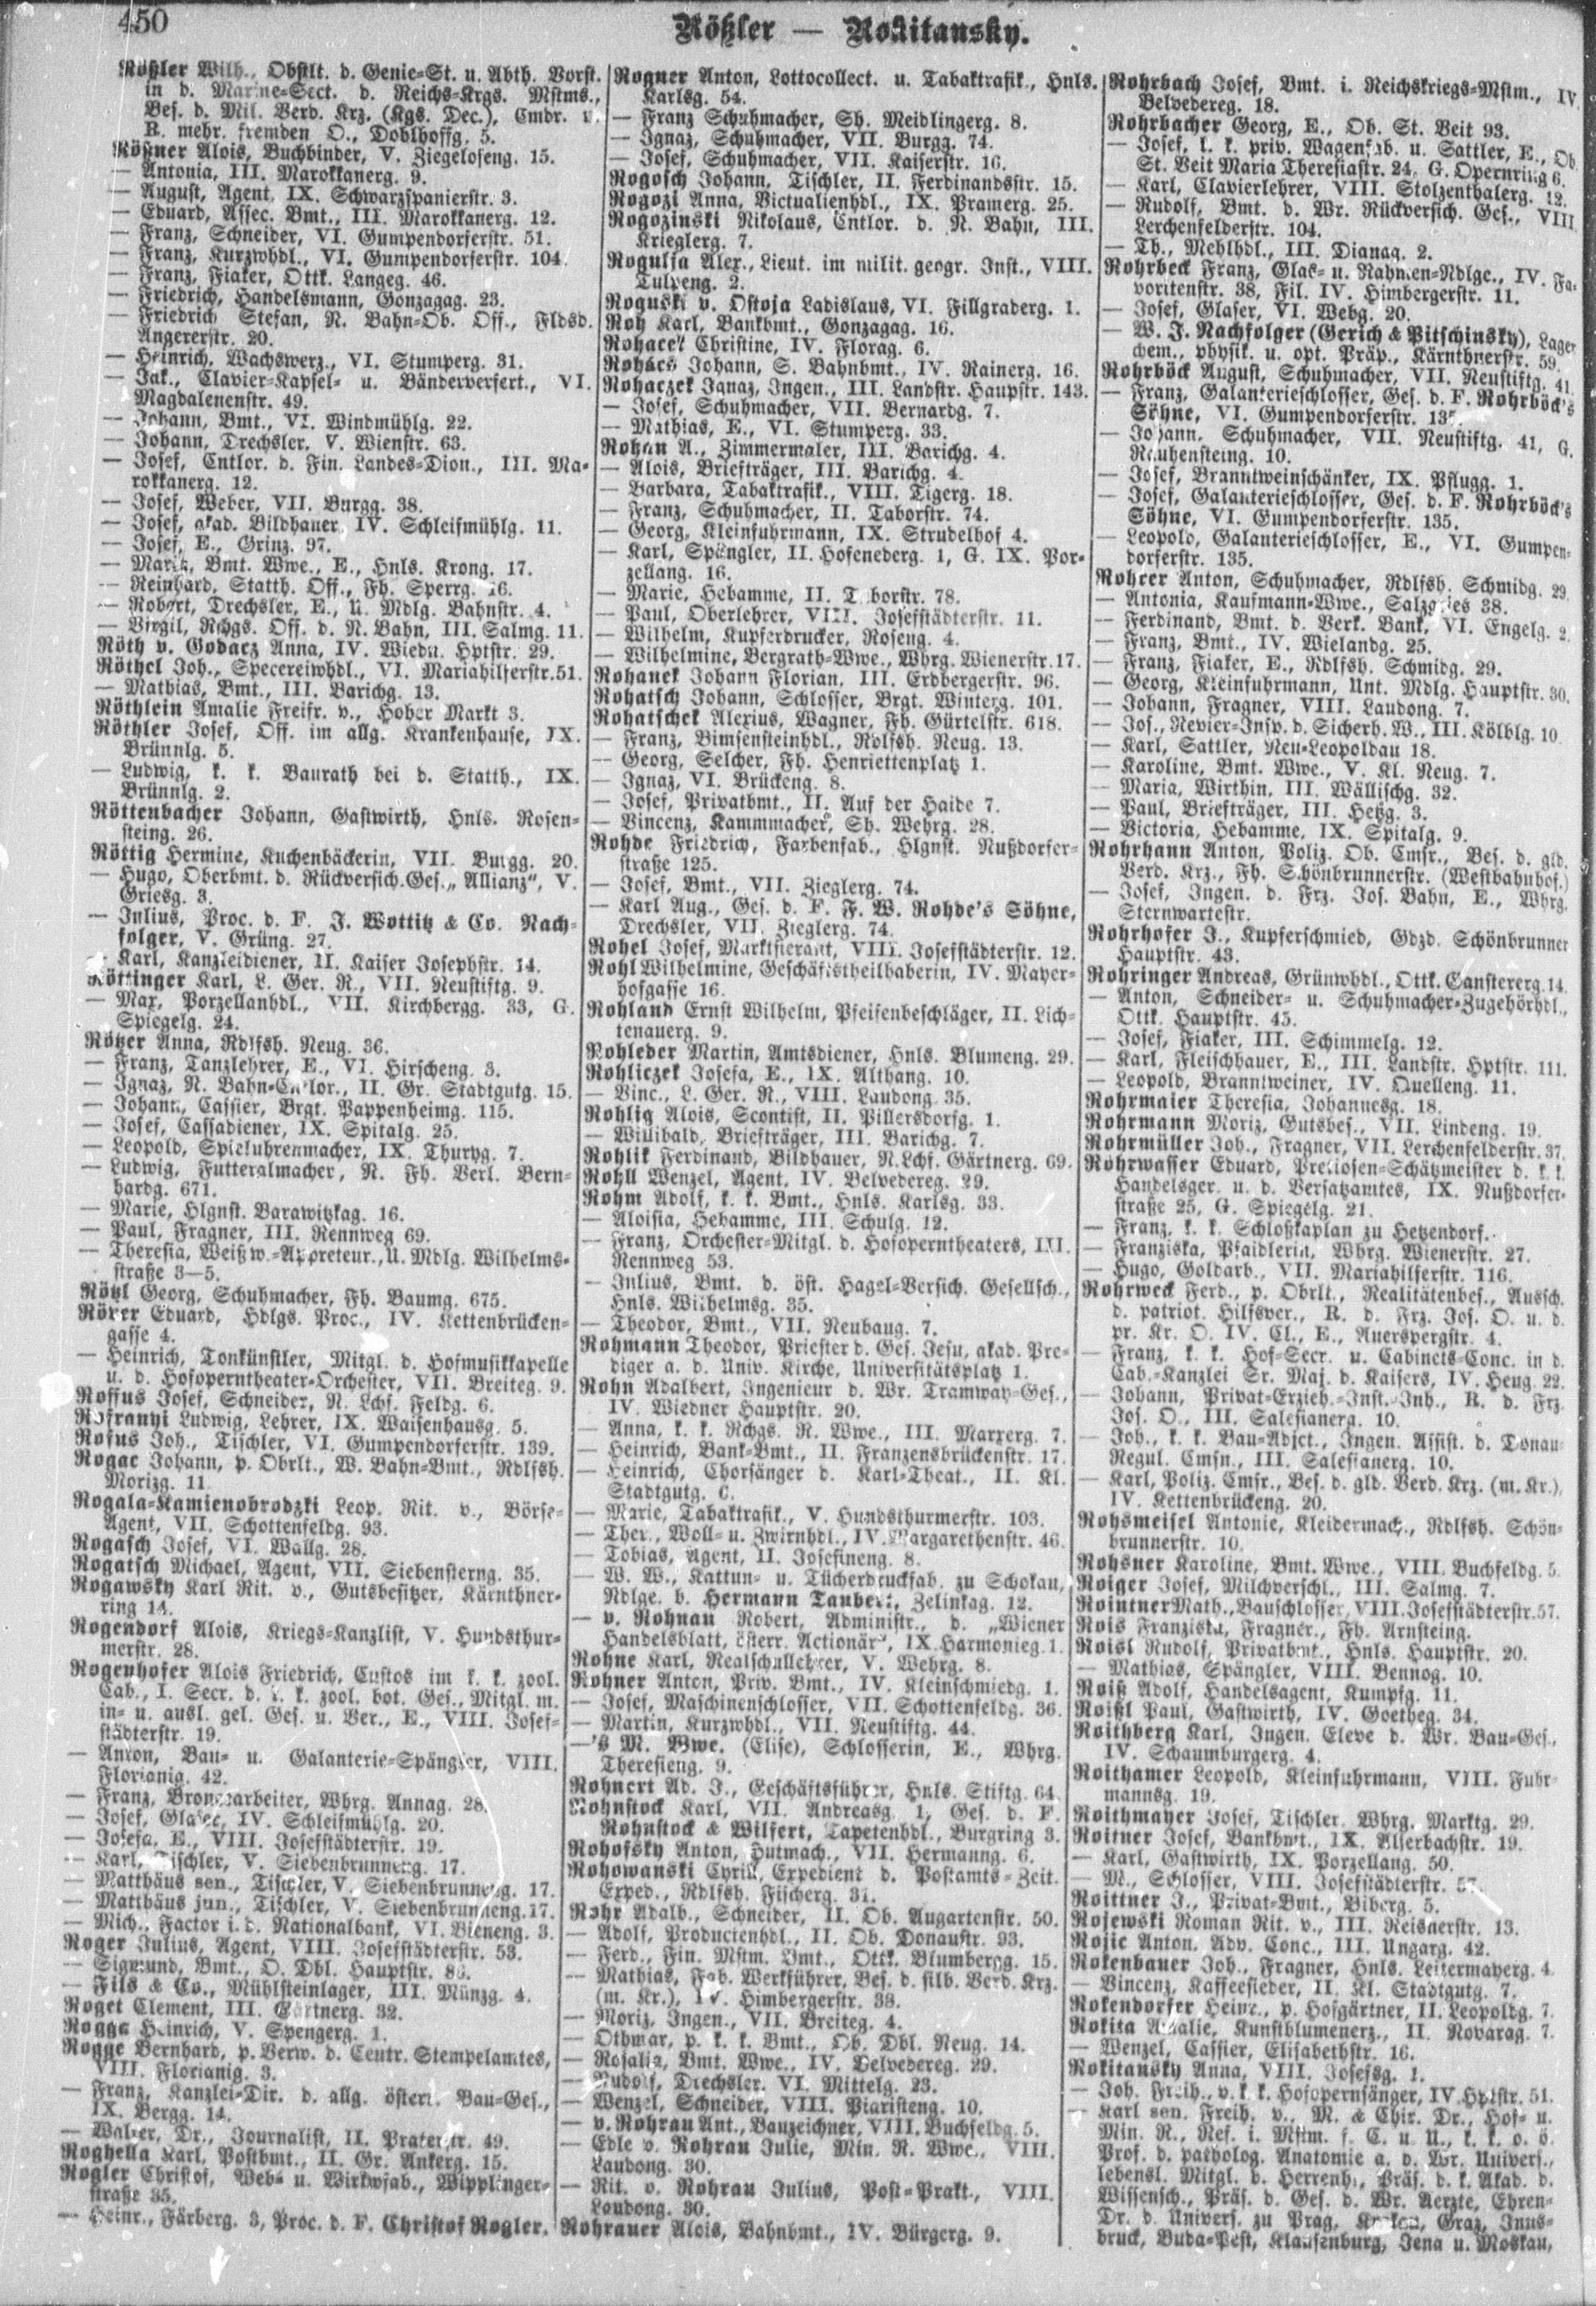 450
Rößler — Rokitansky.
Rößler Wilh., Obstlt. d. Genie-St. u. Abth. Vorst.
in d. Marine-Sect. d. Reichs-Krgs. Mstms.,
Bes. d. Mil. Verd. Krz. (Kgs. Dec.), Cmdr. u.
R. mehr. fremden O., Doblhoffg. 5.
Rößner Alois, Buchbinder, V. Ziegelofeng. 15.
— Antonia, III. Marokkanerg. 9.
— August, Agent, IX. Schwarzspanierstr. 3.
— Eduard, Assec. Bmt., III. Marokkanerg. 12.
— Franz, Schneider, VI. Gumpendorferstr. 51.
— Franz, Kurzwhdl., VI. Gumpendorferstr. 104.
— Franz, Fiaker, Ottk. Langeg. 46.
— Friedrich, Handelsmann, Gonzagag. 23.
— Friedrich Stefan, N. Bahn-Ob. Off., Fldsd.
Angererstr. 20.
— Heinrich, Wachswerz., VI. Stumperg. 31.
— Jak., Clavier-Kapsel- u. Bänderverfert., VI.
Magdalenenstr. 49.
— Johann, Bmt., VI. Windmühlg. 22.
— Johann, Drechsler, V. Wienstr. 63.
— Josef, Cntlor. d. Fin. Landes-Dion., III. Ma-
rokkanerg. 12.
— Josef, Weber, VII. Burgg. 38.
— Josef, akad. Bildhauer, IV. Schleifmühlg. 11.
— Josef, E., Grinz. 97.
— Maria, Bmt. Wwe., E., Hnls. Krong. 17.
— Reinhard, Statth. Off., Fh. Sperrg. 16.
— Robert, Drechsler, E., U. Mdlg. Bahnstr. 4.
— Virgil, Rchgs. Off. d. N. Bahn, III. Salmg. 11.
Röth v. Godacz Anna, IV. Wiedn. Hptstr. 29.
Röthel Joh., Specereiwhdl., VI. Mariahilferstr. 51.
— Mathias, Bmt., III. Barichg. 13.
Röthlein Amalie Freifr. v., Hoher Markt 3.
Röthler Josef, Off. im allg. Krankenhause, IX.
Brünnlg. 5.
— Ludwig, k. k. Baurath bei d. Statth., IX.
Brünnlg. 2.
Röttenbacher Johann, Gastwirth, Hnls. Rosen-
steing. 26.
Röttig Hermine, Kuchenbäckerin, VII. Burgg. 20.
— Hugo, Oberbmt. d. Rückversich. Ges. „Allianz“, V.
Griesg. 3.
— Julius, Proc. d. F. J. Wottitz & Co. Nach-
folger, V. Grüng. 27.
— Karl, Kanzleidiener, II. Kaiser Josephstr. 14.
Röttinger Karl, L. Ger. R., VII. Neustiftg. 9.
— Max, Porzellanhdl., VII. Kirchbergg. 33, G.
Spiegelg. 24.
Rötzer Anna, Rdlfsh. Neug. 36.
— Franz, Tanzlehrer, E., VI. Hirscheng. 3.
— Ignaz, N. Bahn-Cntlor., II. Gr. Stadtgutg. 15.
— Johann, Cassier, Brgt. Pappenheimg. 115.
— Josef, Cassadiener, IX. Spitalg. 25.
— Leopold, Spieluhrenmacher, IX. Thuryg. 7.
— Ludwig, Futteralmacher, N. Fh. Verl. Bern-
hardg. 671.
— Marie, Hlgnst. Barawitzkag. 16.
— Paul, Fragner, III. Rennweg 69.
— Theresia, Weißw.-Appreteur., U. Mdlg. Wilhelms-
straße 3—5.
Rötzl Georg, Schuhmacher, Fh. Baumg. 675.
Röver Eduard, Hdlgs. Proc., IV. Kettenbrücken-
gasse 4.
— Heinrich, Tonkünstler, Mitgl. d. Hofmusikkapelle
u. d. Hofoperntheater-Orchester, VII. Breiteg. 9.
Roffus Josef, Schneider, N. Lchf. Feldg. 6.
Rofranyi Ludwig, Lehrer, IX. Waisenhausg. 5.
Rofus Joh., Tischler, VI. Gumpendorferstr. 139.
Rogac Johann, p. Obrlt., W. Bahn-Bmt., Rdlfsh.
Morizg. 11.
Rogala-Kamienobrodzki Leop. Rit. v., Börse-
Agent, VII. Schottenfeldg. 93.
Rogasch Josef, VI. Wallg. 28.
Rogatsch Michael, Agent, VII. Siebensterng. 35.
Rogawsky Karl Rit. v., Gutsbesitzer, Kärnthner-
ring 14.
Rogendorf Alois, Kriegs-Kanzlist, V. Hundsthur-
merstr. 28.
Rogenhofer Alois Friedrich, Custos im k. k. zool.
Cab., I. Secr. d. k. k. zool. bot. Ges., Mitgl. m.
in- u. ausl. gel. Ges. u. Ver., E., VIII. Josef-
städterstr. 19.
— Anton, Bau- u. Galanterie-Spängler, VIII.
Florianig. 42.
— Franz, Bronzearbeiter, Whrg. Annag. 28.
— Josef, Glaser, IV. Schleifmühlg. 20.
— Josefa, E., VIII. Josefstädterstr. 19.
— Karl, Tischler, V. Siebenbrunneng. 17.
— Matthäus sen., Tischler, V. Siebenbrunneng. 17.
— Matthäus jun., Tischler, V. Siebenbrunneng. 17.
— Mich., Factor i. d. Nationalbank, VI. Bieneng. 3.
Roger Julius, Agent, VIII. Josefstädterstr. 53.
— Sigmund, Bmt., O. Dbl. Hauptstr.
— Fils & Co., Mühlsteinlager, III. Münzg. 4.
Roget Clement, III. Gärtnerg. 32.
Rogga Heinrich, V. Spengerg. 1.
Rogge Bernhard, p. Verw. d. Centr. Stempelamtes,
VIII. Florianig. 3.
— Franz, Kanzlei-Dir. d. allg. österr. Bau-Ges.,
IX. Bergg. 14.
— Walter, Dr., Journalist, II. Praterstr. 49.
Roghella Karl, Postbmt., II. Gr. Ankerg. 15.
Rogler Christof, Web- u. Wirkwfab., Wipplinger-
straße 35.
— Heinr., Färberg. 3, Proc. d. F. Christof Rogler.
Rogner Anton, Lottocollect. u. Tabaktrafik., Hnls.
Karlsg. 54.
— Franz Schuhmacher, Sh. Meidlingerg. 8.
— Ignaz, Schuhmacher, VII. Burgg. 74.
— Josef, Schuhmacher, VII. Kaiserstr. 16.
Rogosch Johann, Tischler, II. Ferdinandsstr. 15.
Rogozi Anna, Victualienhdl., IX. Pramerg. 25.
Rogozinski Nikolaus, Cntlor. d. N. Bahn, III.
Krieglerg. 7.
Rogulja Alex., Lieut. im milit. geogr. Inst., VIII.
Tulpeng. 2.
Roguski v. Ostoja Ladislaus, VI. Fillgraderg. 1.
Roh Karl, Bankbmt., Gonzagag. 16.
Rohacek Christine, IV. Florag. 6.
Rohács Johann, S. Bahnbmt., IV. Rainerg. 16.
Rohaczek Ignaz, Ingen., III. Landstr. Hauptstr. 143.
— Josef, Schuhmacher, VII. Bernardg. 7.
— Mathias, E., VI. Stumperg. 33.
Rohan A., Zimmermaler, III. Barichg. 4.
— Alois, Briefträger, III. Barichg. 4.
— Barbara, Tabaktrafik., VIII. Tigerg. 18.
— Franz, Schuhmacher, II. Taborstr. 74.
— Georg, Kleinfuhrmann, IX. Strudelhof 4.
— Karl, Spängler, II. Hofenederg. 1, G. IX. Por-
zellang. 16.
— Marie, Hebamme, II. Taborstr. 78.
— Paul, Oberlehrer, VIII. Josefstädterstr. 11.
— Wilhelm, Kupferdrucker, Roseng. 4.
— Wilhelmine, Bergrath-Wwe., Whrg. Wienerstr. 17.
Rohanek Johann Florian, III. Erdbergerstr. 96.
Rohatsch Johann, Schlosser, Brgt. Winterg. 101.
Rohatschek Alexius, Wagner, Fh. Gürtelstr. 618.
— Franz, Bimsensteinhdl., Rdlfsh. Neug. 13.
— Georg, Selcher, Fh. Henriettenplatz 1.
— Ignaz, VI. Brückeng. 8.
— Josef, Privatbmt., II. Auf der Haide 7.
— Vincenz, Kammmacher, Sh. Wehrg. 28.
Rohde Friedrich, Farbenfab., Hlgnst. Nußdorfer-
straße 125.
— Josef, Bmt., VII. Zieglerg. 74.
— Karl Aug., Ges. d. F. F. W. Rohde's Söhne,
Drechsler, VII. Zieglerg. 74.
Rohel Josef, Marktfierant, VIII. Josefstädterstr. 12.
Rohl Wilhelmine, Geschäftstheilhaberin, IV. Mayer-
hofgasse 16.
Rohland Ernst Wilhelm, Pfeifenbeschläger, II. Lich-
tenauerg. 9.
Rohleder Martin, Amtsdiener, Hnls. Blumeng. 29.
Rohliczek Josefa, E., IX. Althang. 10.
— Vinc., L. Ger. R., VIII. Laudong. 35.
Rohlig Alois, Scontist, II. Pillersdorfg. 1.
— Willibald, Briefträger, III. Barichg. 7.
Rohlik Ferdinand, Bildhauer, N. Lchf. Gärtnerg. 69.
Rohll Wenzel, Agent, IV. Belvedereg. 29.
Rohm Adolf, k. k. Bmt., Hnls. Karlsg. 33.
— Aloisia, Hebamme, III. Schulg. 12.
— Franz, Orchester-Mitgl. d. Hofoperntheaters, III.
Rennweg 53.
— Julius, Bmt. d. öst. Hagel-Versich. Gesellsch.,
Hnls. Wilhelmsg. 35.
— Theodor, Bmt., VII. Neubaug. 7.
Rohmann Theodor, Priester d. Ges. Jesu, akad. Pre-
diger a. d. Univ. Kirche, Universitätsplatz 1.
Rohn Adalbert, Ingenieur d. Wr. Tramway-Ges.,
IV. Wiedner Hauptstr. 20.
— Anna, k. k. Rchgs. R. Wwe., III. Marxerg. 7.
— Heinrich, Bank-Bmt., II. Franzensbrückenstr. 17.
— Heinrich, Chorsänger d. Karl-Theat., II. Kl.
Stadtgutg.
— Marie, Tabaktrafik, V. Hundsthurmerstr. 103.
— Ther., Woll- u. Zwirnhdl., IV. Margarethenstr. 46.
— Tobias, Agent, II. Josefineng. 8.
— W. W., Kattun- u. Tücherdruckfab. zu Schokau,
Ndlge. b. Hermann Taubert, Zelinkag. 12.
— v. Rohnau Robert, Administr. d. „Wiener
Handelsblatt, österr. Actionär“, IX. Harmonieg. 1.
Rohne Karl, Realschullehrer, V. Wehrg. 8.
Rohner Anton, Priv. Bmt., IV. Kleinschmiedg. 1.
— Josef, Maschinenschlosser, VII. Schottenfeldg. 36.
— Martin, Kurzwhdl., VII. Neustiftg. 44.
—'s M. Wwe. (Elise), Schlosserin, E., Whrg.
Theresieng. 9.
Rohnert Ad. J., Geschäftsführer, Hnls. Stiftg. 64.
Rohnstock Karl, VII. Andreasg. 1, Ges. d. F.
Rohnstock & Wilfert, Tapetenhdl., Burgring 3.
Rohofsky Anton, Hutmach., VII. Hermanng. 6.
Rohowanski Cyrill, Expedient d. Postamts-Zeit.
Exped., Rdlfsh. Fischerg. 31.
Rohr Adalb., Schneider, II. Ob. Augartenstr. 50.
— Adolf, Productenhdl., II. Ob. Donaustr. 93.
— Ferd., Fin. Mstm. Bmt., Ottk. Blumbergg. 15.
— Mathias, Fab. Werkführer, Bes. d. silb. Verd. Krz.
(m. Kr.), IV. Himbergerstr. 38.
— Moriz, Ingen., VII. Breiteg. 4.
— Othmar, p. k. k. Bmt., Ob. Dbl. Neug. 14.
— Rosalia, Bmt. Wwe., IV. Belvedereg. 29.
— Rudolf, Drechsler, VI. Mittelg. 23.
— Wenzel, Schneider, VIII. Piaristeng. 10.
— v. Rohrau Ant., Bauzeichner, VIII. Buchfeldg. 5.
— Edle v. Rohrau Julie, Min. R. Wwe., VIII.
Laudong. 30.
— Rit. v. Rohrau Julius, Post-Prakt., VIII.
Laudong. 30.
Rohrauer Alois, Bahnbmt., IV. Bürgerg. 9.
Rohrbach Josef, Bmt. i. Reichskriegs-Mstm., IV.
Belvedereg. 18.
Rohrbacher Georg, E., Ob. St. Veit 93.
— Josef, k. k. priv. Wagenfab. u. Sattler, E., Ob.
St. Veit Maria Theresiastr. 24, G. Opernring 6.
— Karl, Clavierlehrer, VIII. Stolzenthalerg. 12.
— Rudolf, Bmt. d. Wr. Rückversich. Ges., VIII.
Lerchenfelderstr. 104.
— Th., Mehlhdl., III. Dianag. 2.
Rohrbeck Franz, Glas- u. Rahmen-Ndlge., IV. Fa-
voritenstr. 38, Fil. IV. Himbergerstr. 11.
— Josef, Glaser, VI. Webg. 20.
— W. J. Nachfolger (Gerich & Pitschinsky), Lager
chem., physik. u. opt. Präp., Kärnthnerstr. 59.
Rohrböck August, Schuhmacher, VII. Neustiftg. 41.
— Franz, Galanterieschlosser, Ges. d. F. Rohrböck's
Söhne, VI. Gumpendorferstr. 135.
— Johann, Schuhmacher, VII. Neustiftg. 41, G.
Rauhensteing. 10.
— Josef, Branntweinschänker, IX. Pflugg. 1.
— Josef, Galanterieschlosser, Ges. d. F. Rohrböck's
Söhne, VI. Gumpendorferstr. 135.
— Leopold, Galanterieschlosser, E., VI. Gumpen-
dorferstr. 135.
Rohrer Anton, Schuhmacher, Rdlfsh. Schmidg. 29.
— Antonia, Kaufmann-Wwe., Salzgries 38.
— Ferdinand, Bmt. d. Verk. Bank, VI. Engelg. 2.
— Franz, Bmt., IV. Wielandg. 25.
— Franz, Fiaker, E., Rdlfsh. Schmidg. 29.
— Georg, Kleinfuhrmann, Unt. Mdlg. Hauptstr. 30.
— Johann, Fragner, VIII. Laudong. 7.
— Jos., Revier-Insp. d. Sicherh. W., III. Kölblg. 10.
— Karl, Sattler, Neu-Leopoldau 18.
— Karoline, Bmt. Wwe., V. Kl. Neug. 7.
— Maria, Wirthin, III. Wällischg. 32.
— Paul, Briefträger, III. Hetzg. 3.
— Victoria, Hebamme, IX. Spitalg. 9.
Rohrhann Anton, Poliz. Ob. Cmsr., Bes. d. gld.
Verd. Krz., Fh. Schönbrunnerstr. (Westbahnhof.)
— Josef, Ingen. d. Frz. Jos. Bahn, E., Whrg.
Sternwartestr.
Rohrhofer J., Kupferschmied, Gdzd. Schönbrunner
Hauptstr. 43.
Rohringer Andreas, Grünwhdl., Ottk. Ganstererg. 14.
— Anton, Schneider- u. Schuhmacher-Zugehörhdl.,
Ottk. Hauptstr. 45.
— Josef, Fiaker, III. Schimmelg. 12.
— Karl, Fleischhauer, E., III. Landstr. Hptstr. 111.
— Leopold, Branntweiner, IV. Quelleng. 11.
Rohrmaier Theresia, Johannesg. 18.
Rohrmann Moriz, Gutsbes., VII. Lindeng. 19.
Rohrmüller Joh., Fragner, VII. Lerchenfelderstr. 37.
Rohrwasser Eduard, Pretiosen-Schätzmeister d. k. k.
Handelsger. u. d. Versatzamtes, IX. Nußdorfer-
straße 25, G. Spiegelg. 21.
— Franz, k. k. Schloßkaplan zu Hetzendorf.
— Franziska, Pfaidlerin, Whrg. Wienerstr. 27.
— Hugo, Goldarb., VII. Mariahilferstr. 116.
Rohrweck Ferd., p. Obrlt., Realitätenbes., Aussch.
d. patriot. Hilfsver., R. d. Frz. Jos. O. u. d.
pr. Kr. O. IV. Cl., E., Auerspergstr. 4.
— Franz, k. k. Hof-Secr. u. Cabinets-Conc. in d.
Cab.-Kanzlei Sr. Maj. d. Kaisers, IV. Heug. 22.
— Johann, Privat-Erzieh.-Inst.-Inh., R. d. Frz.
Jos. O., III. Salesianerg. 10.
— Joh., k. k. Bau-Adjct., Ingen. Assist. d. Donau-
Regul. Cmsn., III. Salesianerg. 10.
— Karl, Poliz. Cmsr., Bes. d. gld. Verd. Krz. (m. Kr.),
IV. Kettenbrückeng. 20.
Rohsmeisel Antonie, Kleidermach., Rdlfsh. Schön-
brunnerstr. 10.
Rohsner Karoline, Bmt. Wwe., VIII. Buchfeldg. 5.
Roiger Josef, Milchverschl., III. Salmg. 7.
Rointner Math., Bauschlosser, VIII. Josefstädterstr. 57.
Rois Franziska, Fragner., Fh. Arnsteing.
Roisl Rudolf, Privatbmt., Hnls. Hauptstr. 20.
— Mathias, Spängler, VIII. Bennog. 10.
Roiß Adolf, Handelsagent, Kumpfg. 11.
Roißl Paul, Gastwirth, IV. Goetheg. 34.
Roithberg Karl, Ingen. Eleve d. Wr. Bau-Ges.,
IV. Schaumburgerg. 4.
Roithamer Leopold, Kleinfuhrmann, VIII. Fuhr-
mannsg. 19.
Roithmayer Josef, Tischler, Whrg. Marktg. 29.
Roitner Josef, Bankbmt., IX. Alserbachstr. 19.
— Karl, Gastwirth, IX. Porzellang. 50.
— M., Schlosser, VIII. Josefstädterstr. 57.
Roittner J., Privat-Bmt., Biberg. 5.
Rojewski Roman Rit. v., III. Reisnerstr. 13.
Rojic Anton, Adv. Conc., III. Ungarg. 42.
Rokenbauer Joh., Fragner, Hnls. Leitermayerg. 4.
— Vincenz, Kaffeesieder, II. Kl. Stadtgutg. 7.
Rokendorfer Heinr., p. Hofgärtner, II. Leopoldg. 7.
Rokita Amalie, Kunstblumenerz., II. Novarag. 7.
— Wenzel, Cassier, Elisabethstr. 16.
Rokitansky Anna, VIII. Josefsg. 1.
— Joh. Freih. v. k. k. Hofopernsänger, IV. Hptstr. 51.
— Karl sen. Freih. v., M. & Chir. Dr., Hof- u.
Min. R., Ref. i. Mstm. f. C. u. U., k. k. o. ö.
Prof. d. patholog. Anatomie a. d. Wr. Univers.,
lebensl. Mitgl. d. Herrenh., Präs. d. k. Akad. d.
Wissensch., Präs. d. Ges. d. Wr. Aerzte, Ehren-
Dr. d. Univers. zu Prag, Krakau, Graz, Inns-
bruck, Buda-Pest, Klausenburg, Jena u. Moskau,